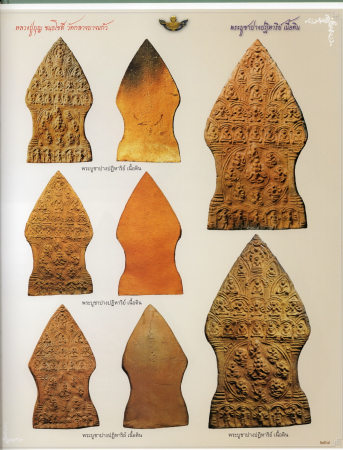 หลวงปู่บุญ ขันธโชติ วัดกลางบางแก้ว
พระบูชาปางปฏิหาริย์ เนื้อดิน
พระบูชาปางปฏิหาริย์ เนื้อดิน
พระบูชาปางปฏิหาริย์ เนื้อดิน
พระบูชาปางปฏิหาริย์ เนื้อดิน
พระบูชาปางปฏิหาริย์ เนื้อดิน
พระบูชาปางปฏิหาริย์ เนื้อดิน